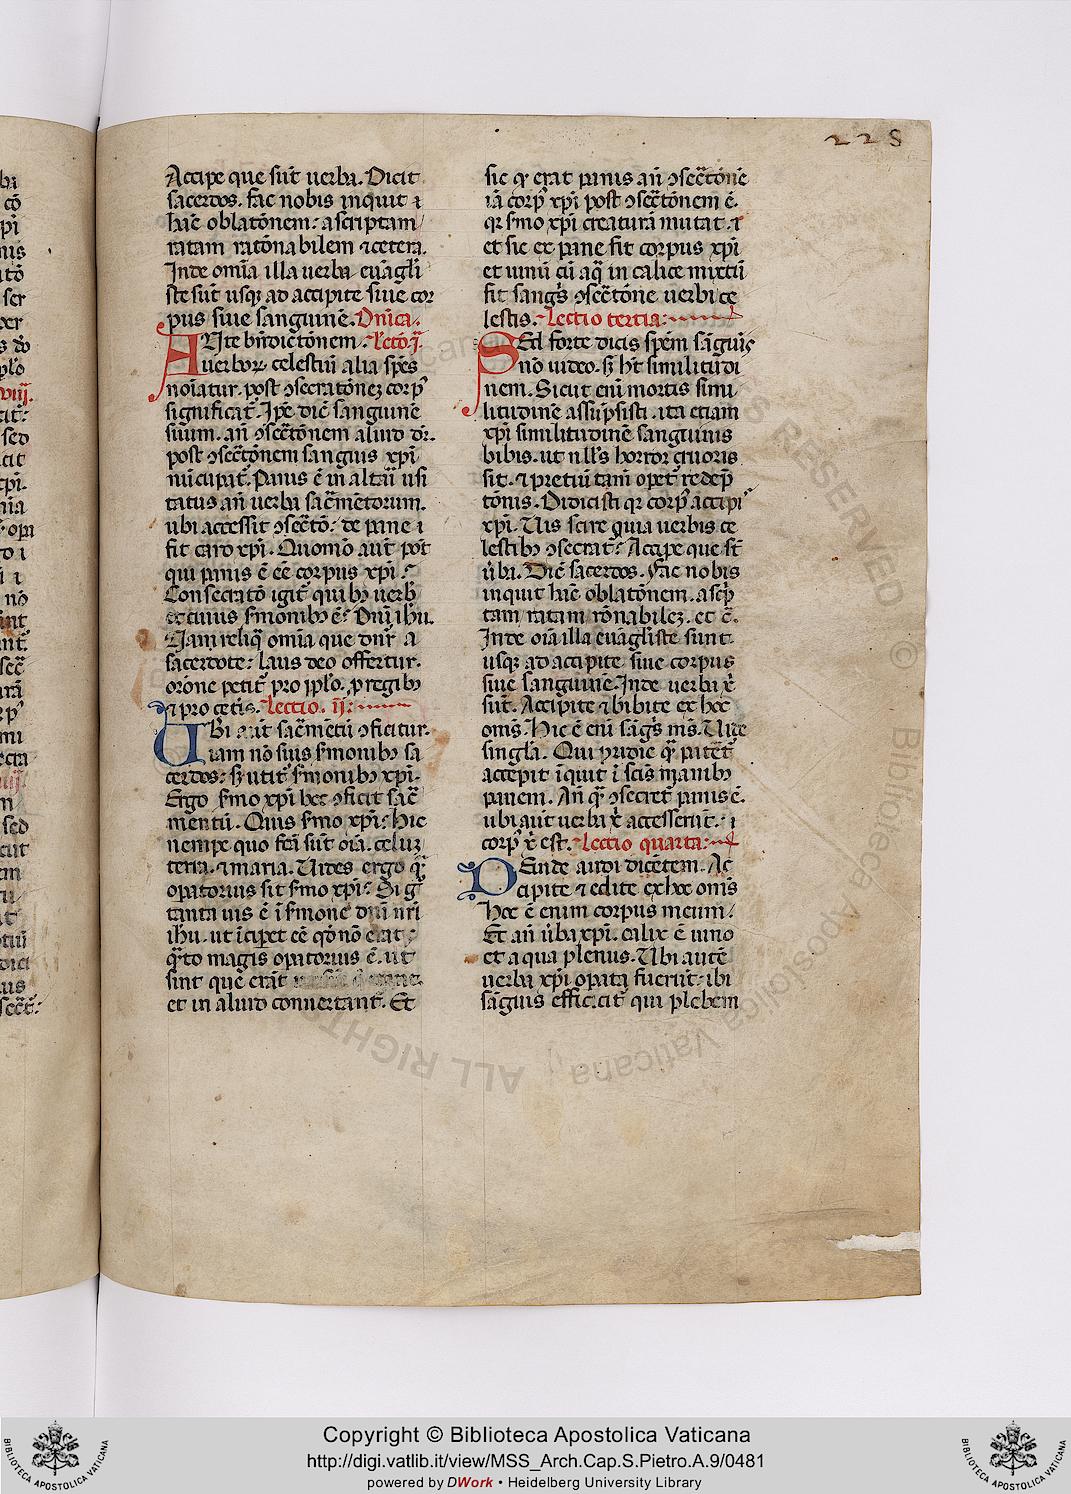 228
Accipe que sūt uerba. Dicit
sacerdos. fac nobis inquit ⁊
hāc oblatōnem: ascriptam
ratam ratōnabilem ⁊ cetera.
Inde omīa illa uerba euāgeli
ste sūt usq; ad accipite siue cor
pus siue sanguinē. Dn̄ica.
Ante bn̄dictōnem Lectō. j̄.
uerborꝝ celestiū alia spēs
noīatur. post ↄsecratōneꝫ corpꝰ
significat᷑. Ipe dic̄ sanguinē
suum. an̄ ↄsec̄tōnem aliud dr̄.
post ↄsec̄tōnem sanguis xp̄i
nūcupat᷑. Panis ē in altū usi
tatus an̄ uerba sac̄mētorum.
ubi accessit ↄsec̄tō: de pane
fit caro xp̄i. Quomō aut̄ pot̄
qui panis ē eē corpus xp̄i:
Consecratō igit᷑ quibꝫ uerb̄
et cuius s̄monibꝫ ē: Dn̄i ih̄u.
Nam reliq̄ omīa que dn̄r a
sacerdote: laus deo offertur.
orōne petit᷑ pro pplo. p regibꝫ
⁊ pro cetīs. Lectio. ii:
Ubi aūt sac̄mētū ↄficitur.
iam nō suis s̄monibꝫ sa
cerdos: sꝫ utit᷑ s̄monibꝫ xp̄i.
Ergo s̄mo xp̄i hec ↄficit sac̄
mentū. Quis s̄mo xp̄i: hic
nempe quo fc̄i sūt oīa. celuꝫ
terra. ⁊ maria. Uides ergo q̄
opatorius sit s̄mo xp̄i: Si gͦ
tanta uis ē ī s̄mone dn̄i nr̄i
ih̄u. ut īciꝑet eē qd̄ nō erat:
q̄to magis opatorius ē. ut
sint que erāt
et in aliud conuertant᷑. Et
sic qͥ erat panis an̄ ↄsec̄tōnē
iā corpꝰ xp̄i post ↄsec̄tōnem ē.
qꝛ s̄mo xp̄i creaturā mutat. ⁊
et sic ex pane fit corpus xp̄i
et uinū cū aq̄ in calice mixtū
fit sanḡs ↄsec̄tōne uerbi ce
lestis. Lectio tertia:
Sed forte dicis spēm sāguīs
nō uideo. sꝫ h̄t similitudi
nem. Sicut enī mortis simi
litudinē assūpsisti. ita etiam
xp̄i similitudinē sanguinis
bibis. ut nll̄s horror cruoris
sit. ⁊ pretiū tam̄ opet᷑ redēp
tōnis. Didicisti qꝛ corpꝰ accipiˢ
xp̄i. Uis scire quia uerbis ce
lestibꝫ ↄsecrat᷑: Accipe que st̄
ūba. Dic̄ sacerdos. Fac nobis
inquit hāc oblatōnem. ascp̄
tam ratam rōnabileꝫ. et c̄.
Inde oīa illa euāgliste sunt
usq; ad accipite siue corpus
siue sanguinē. Inde uerba xͥ
sūt. Accipite ⁊ bibite ex hoc
oms̄. Hic ē enī sāḡs ms̄. Uide
singl̄a. Qui pridie q̄ patet᷑
accepit īquit ī scīs manibꝫ
panem. An̄ q̄ ↄsecret᷑ panis ē.
ubi aut̄ uerba xͥ accesserīt. ⁊
corpꝰ xͥ est. Lectio quarta:
Deinde audi dicētem. Ac
cipite ⁊ edite ex hoc om̄s
hoc ē enim corpus meum.
Et an̄ ūba xp̄i. calix ē uino
et aqua plenus. Ubi autē
uerba xp̄i opata fuerūt: ibi
sāguis efficcit᷑ qui plebem
ALL RIGHTS RESERVED © Biblioteca Apostolica Vaticana
Copyright © Biblioteca Apostolica Vaticana
http://digi.vatlib.it/view/MSS_Arch.Cap.S.Pietro.A.9/0481
powered by DWork • Heidelberg University Library
BIBLIOTECA APOSTOLICA VATICANA
BIBLIOTECA APOSTOLICA VATICANA